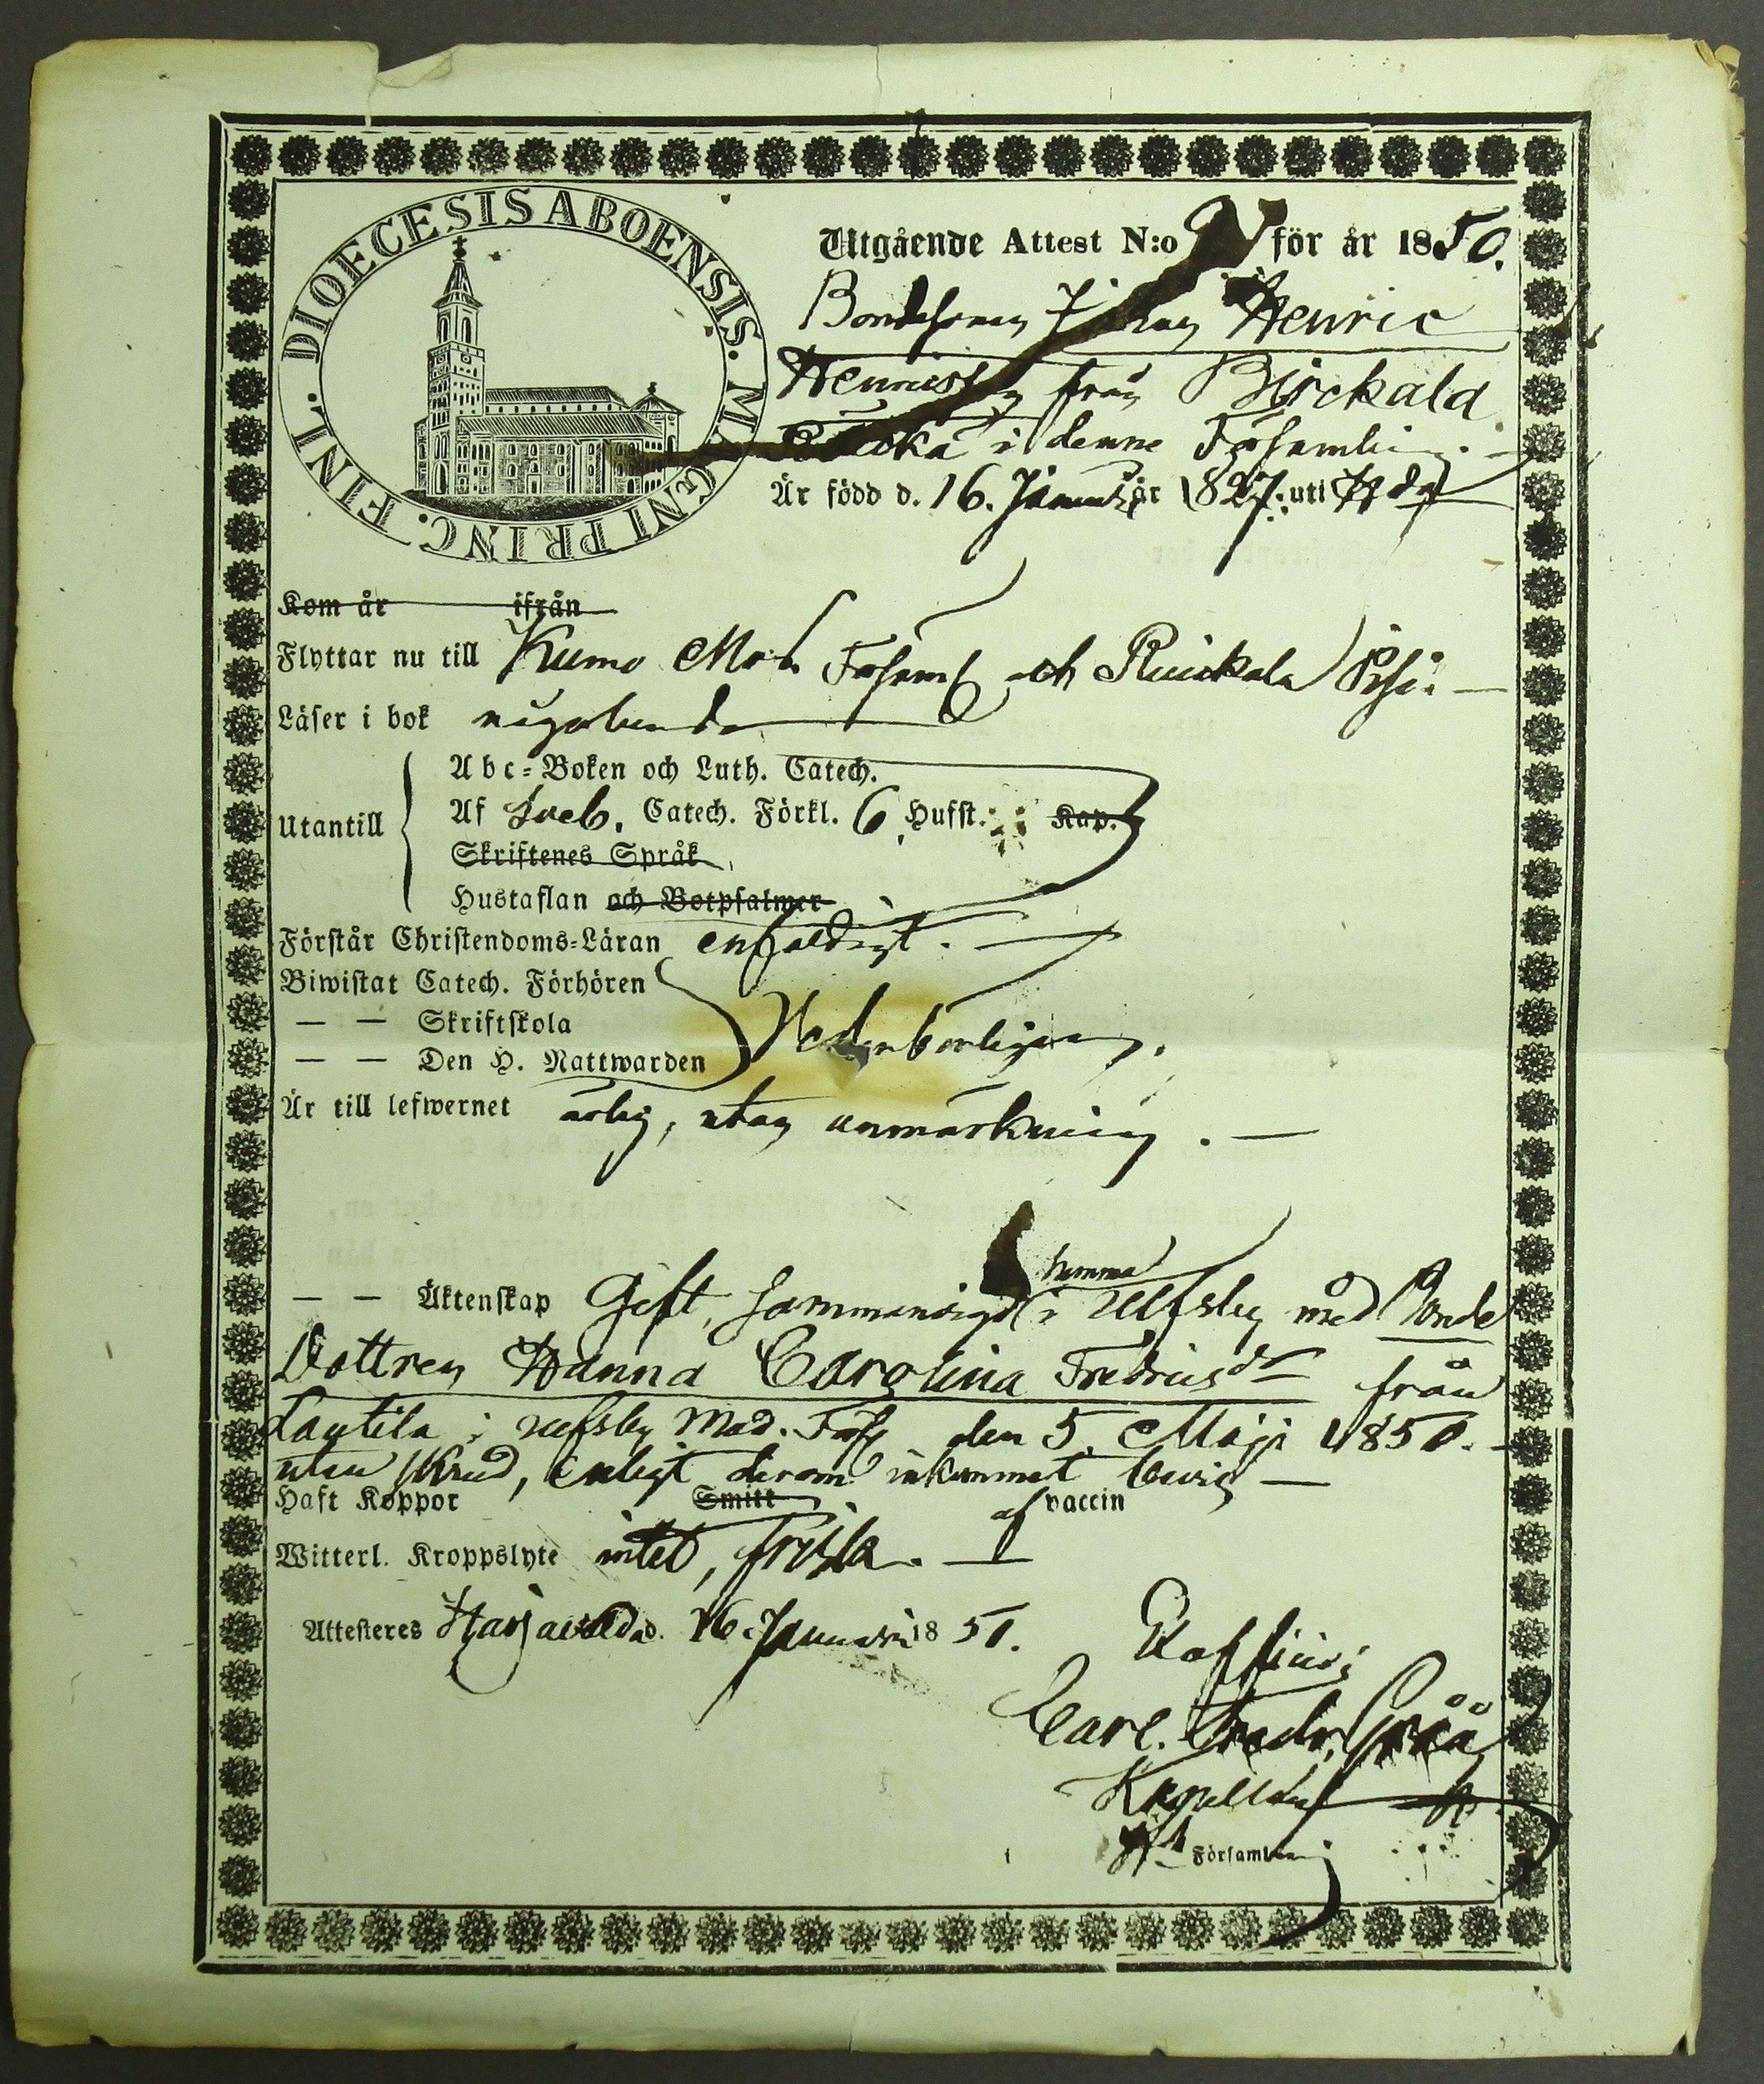 DIOECESIS ABOENSIS. MAGNI PRINC. FINL.
Utgående Attest N:o för år 1850.
Bondesonen Johan Henric
Henricss från Birckala
i denne Församling.
Är född d. 16. Januarii år 1827. uti H-da
Kom år ifrån
Flyttar nu till Kumo Mod. Församl och
Läser i bok någorlunda
Utantill
Abc-Boken och Luth. Catech.
Af Sveb. Catech. Förkl. 6 Hufst. Kap.
Skriftenes Språk
Hustaflan och Botpsalmer
Förstår Christendoms-Läran enfaldigt.
Biwistat Catech. Förhören
— — Skriftskola
— — Den H. Nattwarden
Vederbörligen.
Är till lefwernet ärlig, utan anmärkning. —
hemma
— — Äktenskap Gift, sammanvigd i Ulfsby med Bonde
Dottren Hanna Carolina Fredricsdr från
Lautila i Ulfsby Mod. Förs den 5. Maji 1850. -
utan skrud, enligt derom inkommet bevis —
Haft Koppor Smitt af vaccin
Witterl. Kroppslyte intet, friska. —
Attesteres Harjavalda d. 16. Januari 1851.
Ex officio:
Carl. Fredr.
Kapellan
Församling